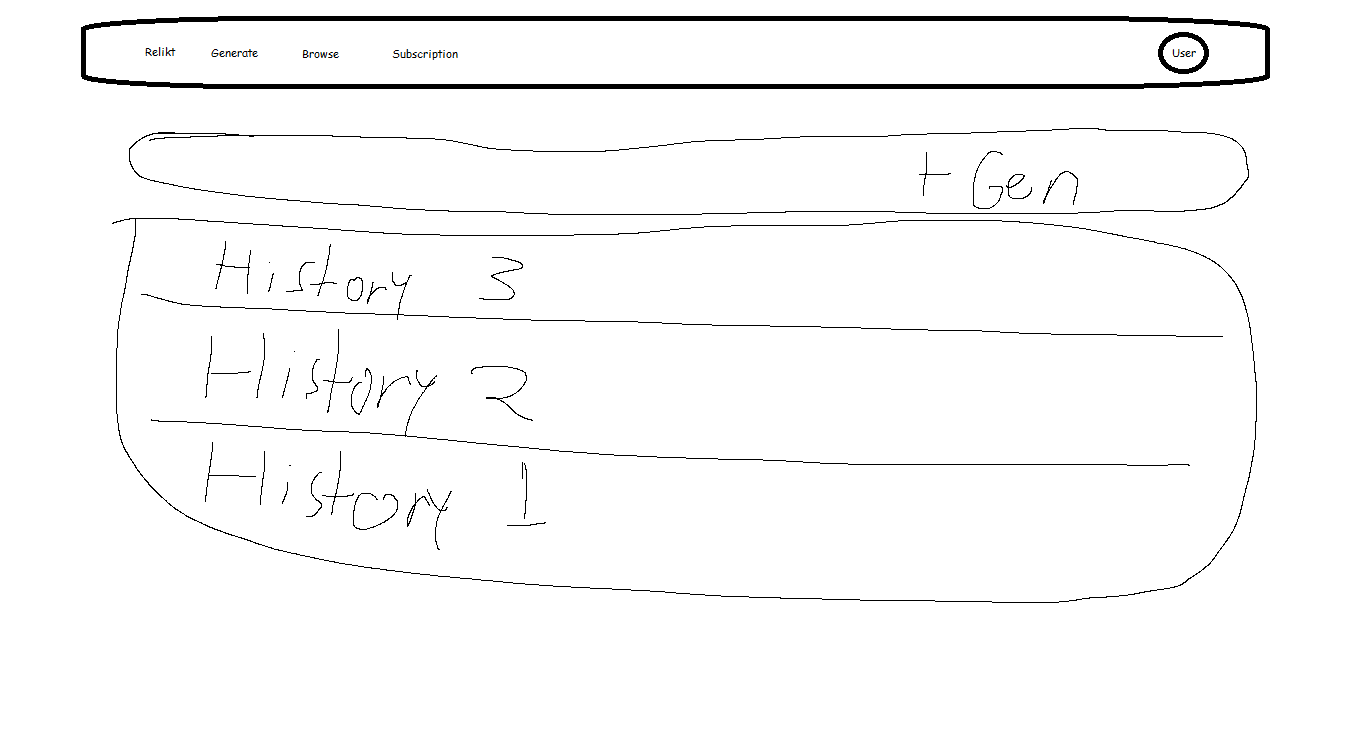 Relikt Generate Browse Subscription User
+ Gen
History 3
History 2
History 1